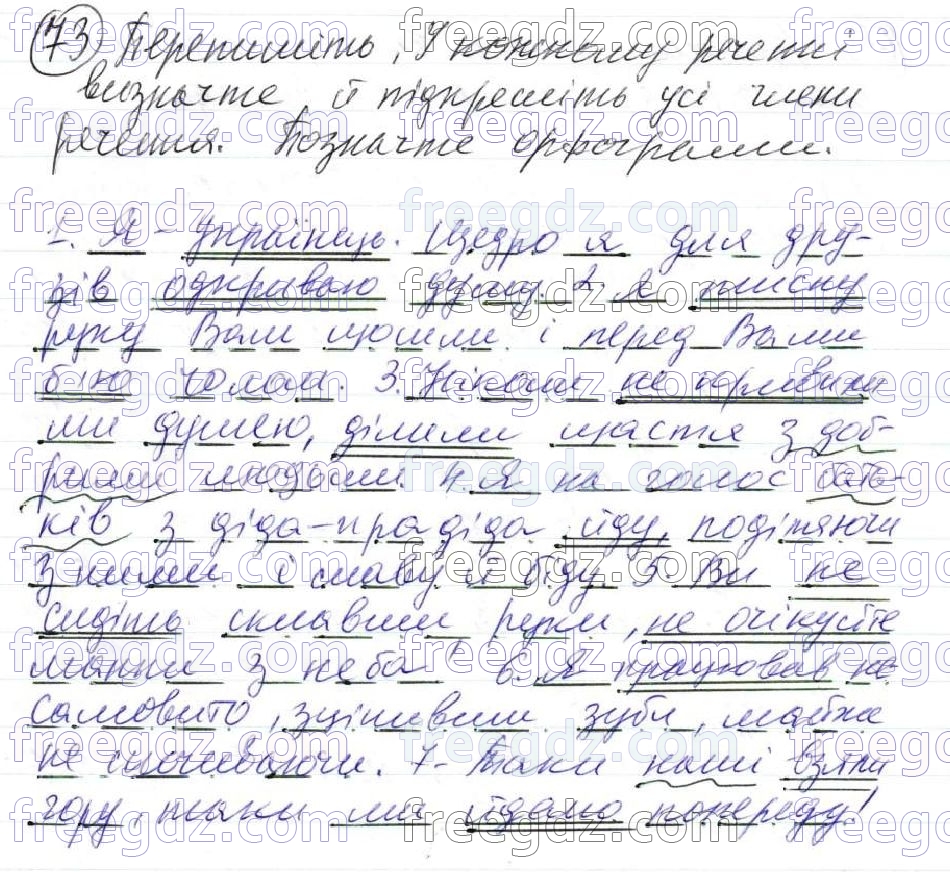 73 Перепишіть, У кожному реченні
визначте й підкресліть усі члени
речення. Позначте орфограми.
1. Я - українець. Щедро я для дру-
зів одкриваю душу. 2 Я тисну
руку Вам щошли і перед Вами
б'ю чолом. 3. Ніколи не кривили
ми душею, ділили щастя з доб-
рими людьми. 4. Я на голос бать-
ків з діда-прадіда йду, поділяючи
з ними і славу й біду. 5. Ви не
сидіть склавши руки, не очікуйте
манни з неба. 6. Я працював не
самовито, зціпивши зуби, майже
не спочиваючи. 7- Таки наші взяли
гору, таки ми йдемо попереду!